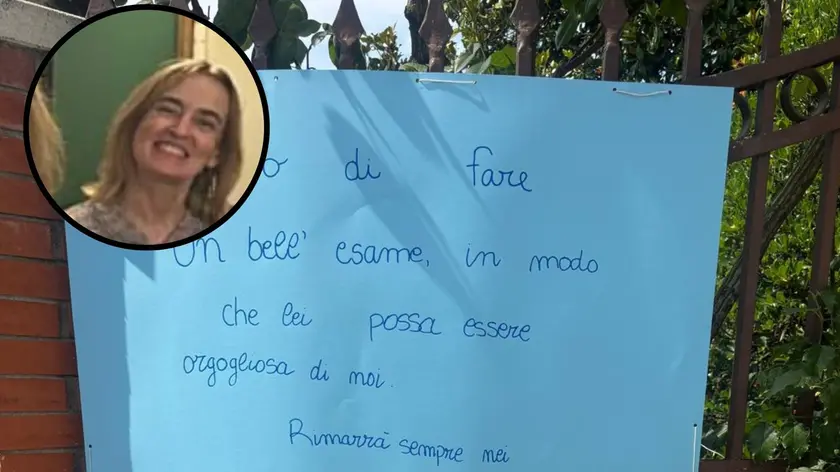 di fare
Un bell' esame, in modo
che lei possa essere
orgogliosa di noi.
Rimarrà sempre nei